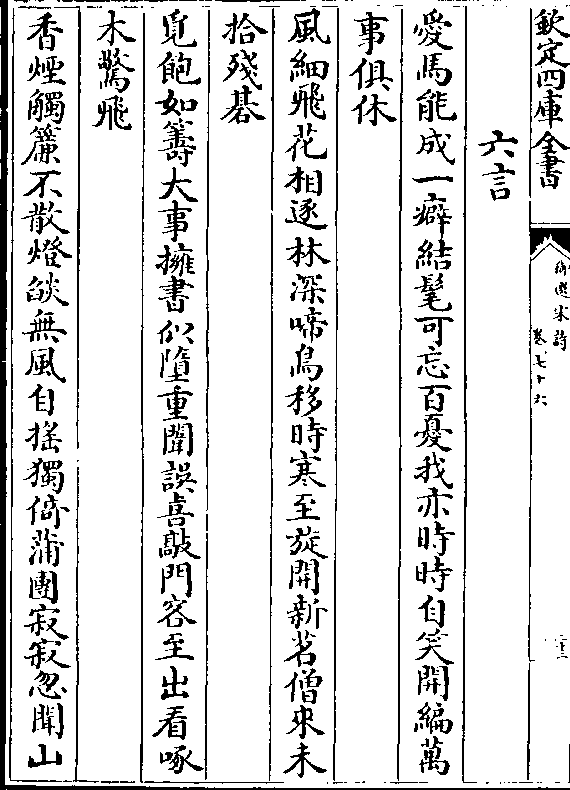 欽定四庫全書
御選宋詩
卷七十六
六言
愛馬能成一癖結髦可忘百憂我亦時時自笑開編萬
事俱休
風細飛花相逐林深啼鳥移時寒至旋開新茗僧來未
拾殘碁
覓飽如籌大事擁書似墮重聞誤喜敲門客至出看啄
木驚飛
香煙觸簾不散燈燄無風自搖獨倚蒲團寂寂忽聞山